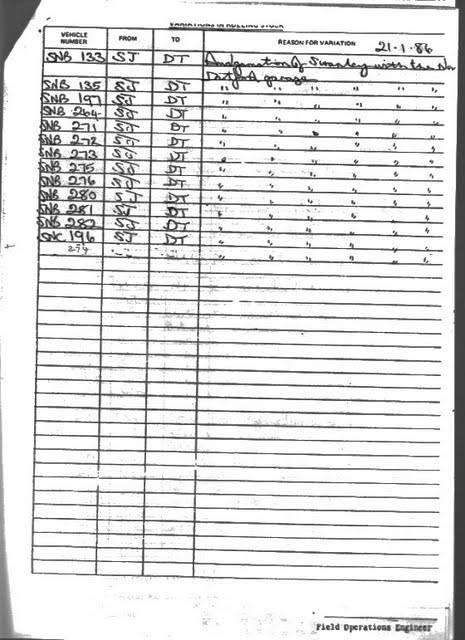 VARIATIONS IN ROLLING STOCK
VEHICLE NUMBER FROM TO REASON FOR VARIATION 21-1-86
SNB 133 SJ DT Amalgamation of Swanley with the New
Dartford garage
SNB 135 SJ DT " " " " " " "
SNB 197 SJ DT " " " " " "
SNB 264 SJ DT " " " " " "
SNB 271 SJ DT " " " " " "
SNB 272 SJ DT " " " " " "
SNB 273 SJ DT " " " " " "
SNB 275 SJ DT " " " " " "
SNB 276 SJ DT " " " " " "
SNB 280 SJ DT " " " " " "
SNB 281 SJ DT " " " " " "
SNB 282 SJ DT " " " " " "
SNC 196 SJ DT " " " " " "
Field Operations Engineer